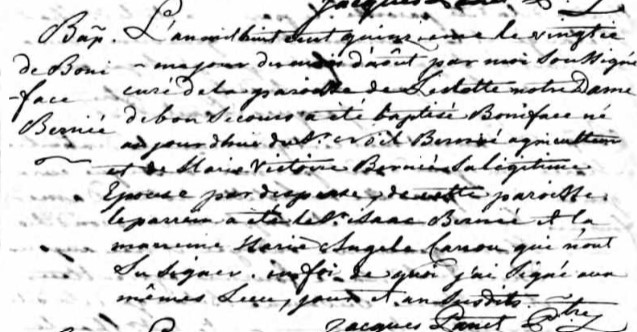 Bap. L'an mil huit cent quinze, et le vingtie
de Boni - me jour du mois d'août par moi soussigné
-face curé de la paroisse de L'Islette notre Dame
Bernié de bon Secours a été baptisé Boniface né
aujourd'hui du Sr. Bernié agriculteur
et de Marie Victoire Bernié Sa légitime
Epouse par dispense, de cette paroisse.
le parrain a été le Sr. Isaac Bernié et la
marreine Marie Angele Caron qui n'ont
Su Signer. en foi de quoi j'ai Signé aux
mêmes Lieu, jour et an Susdits.
Jacques Panet Ptre